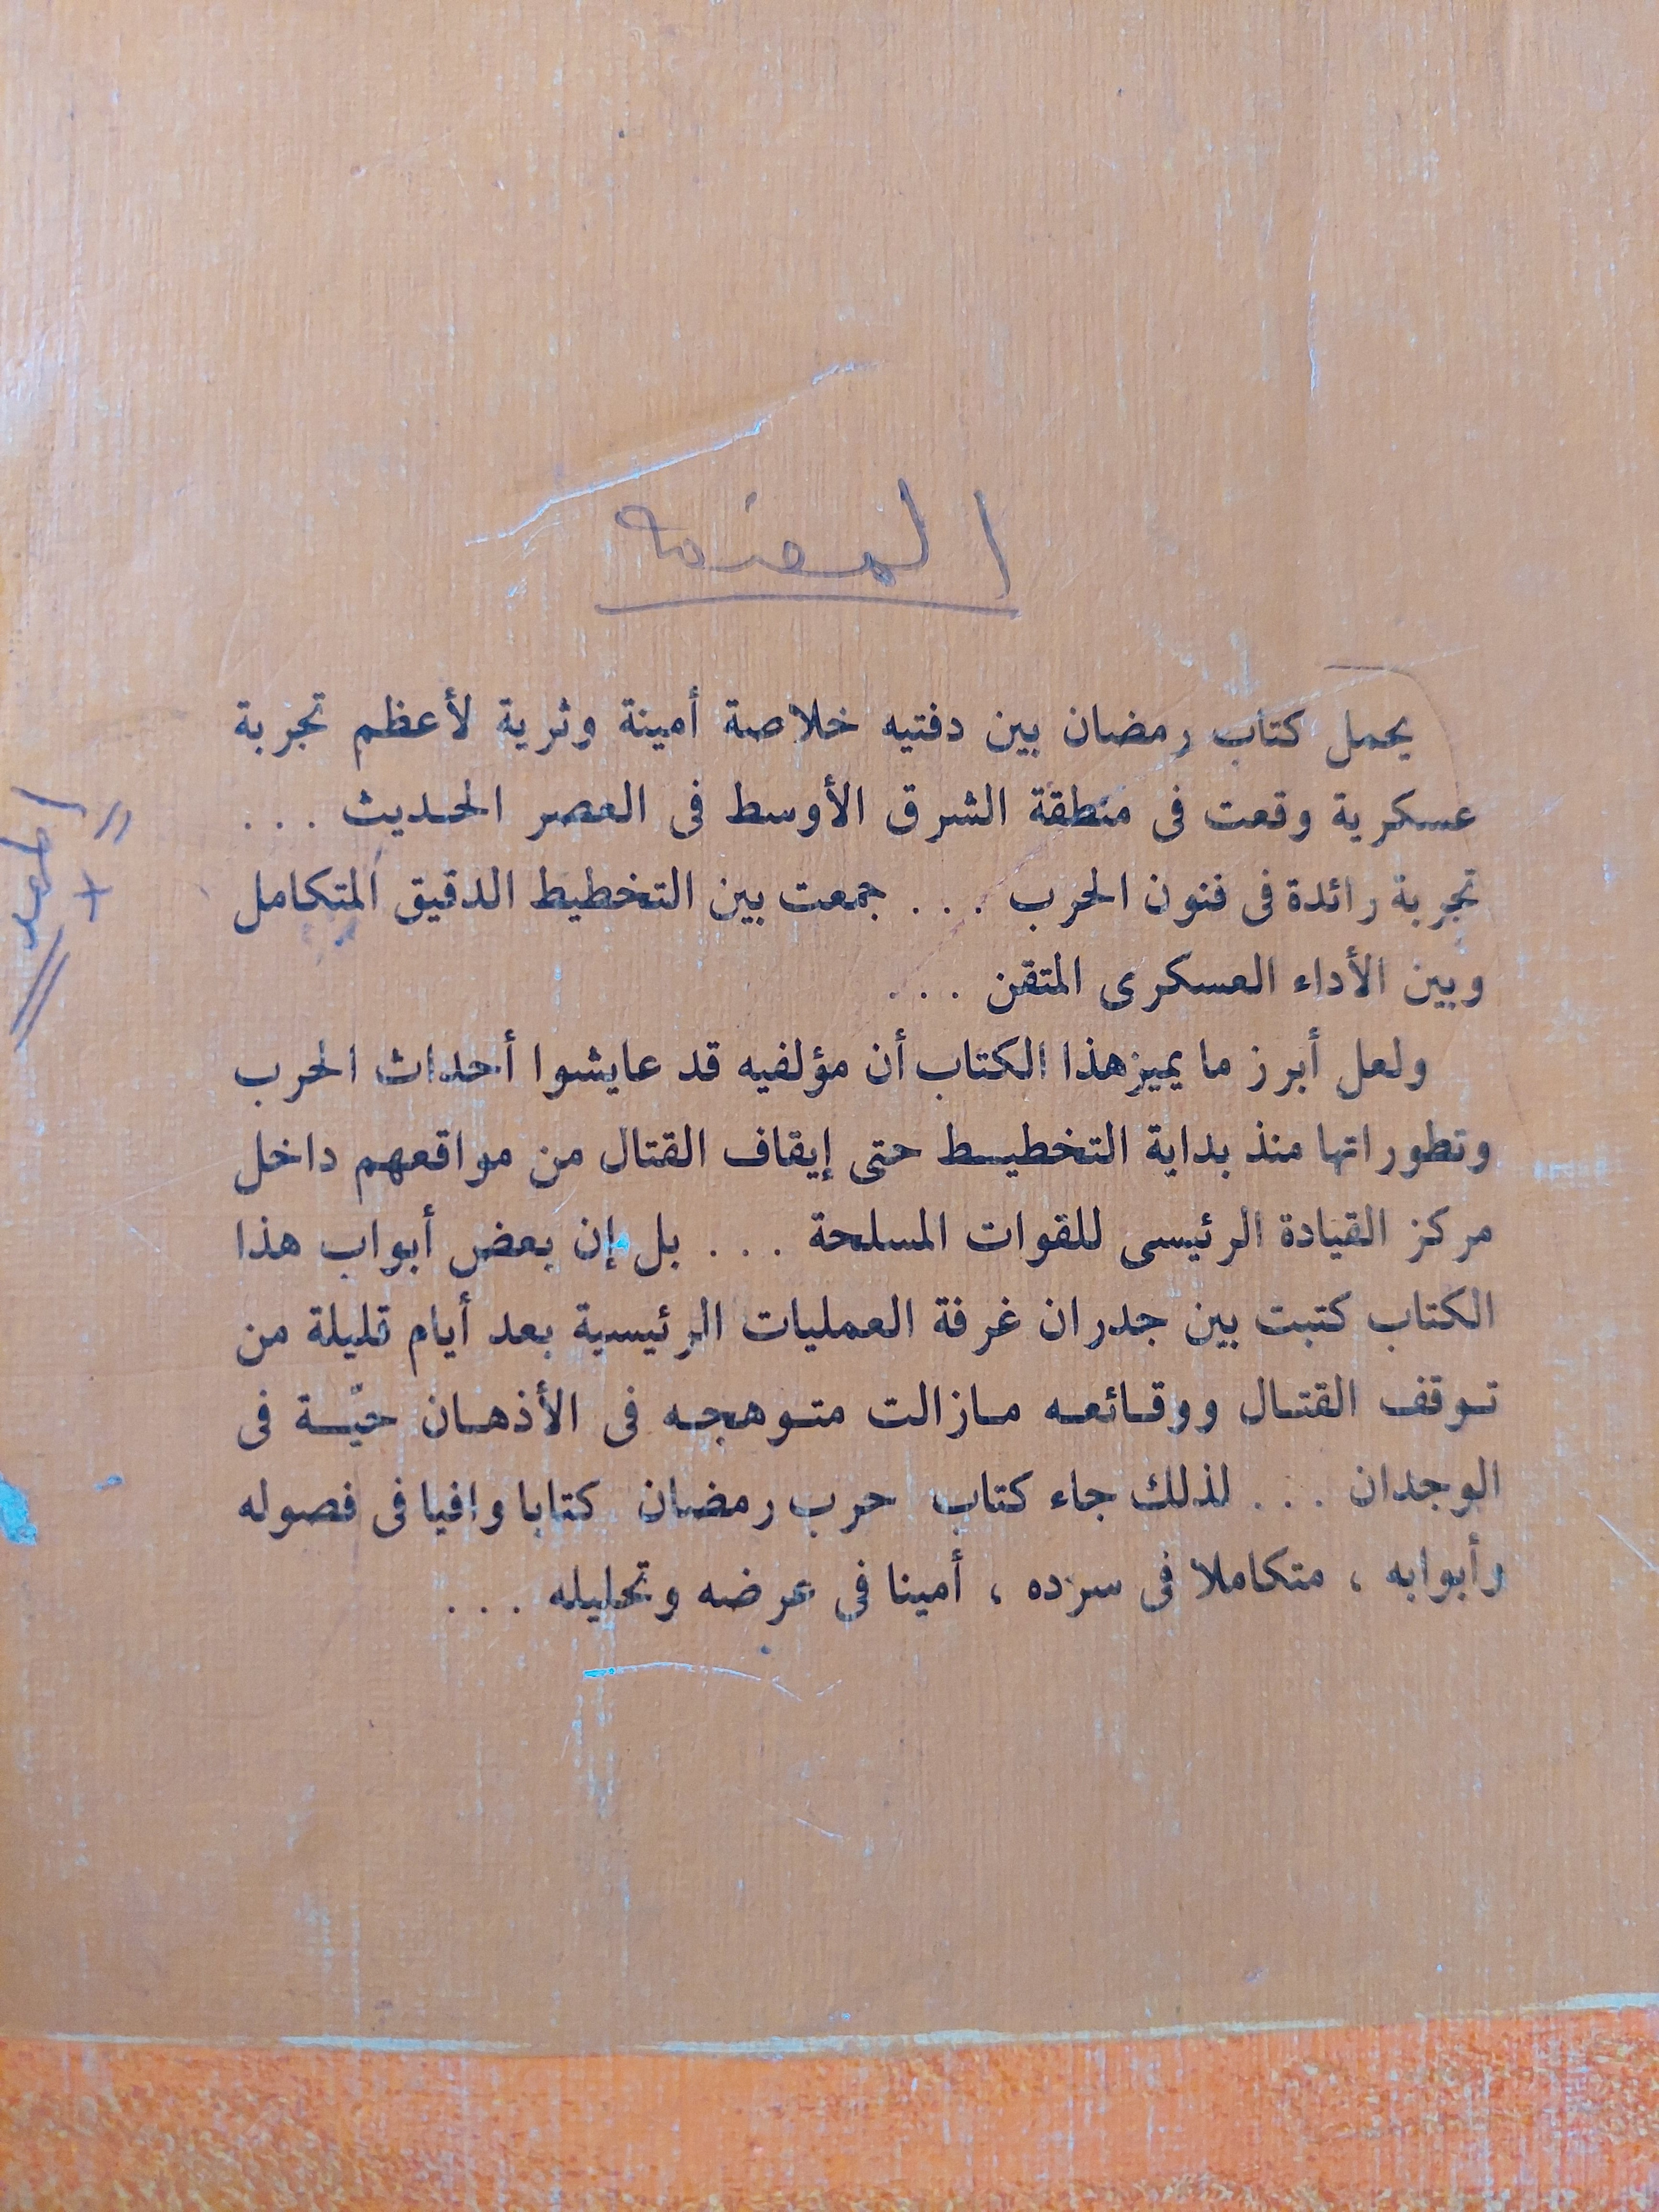 المقدمه
يحمل كتاب رمضان بين دفتيه خلاصة أمينة وثرية لأعظم تجربة
عسكرية وقعت فى منطقة الشرق الأوسط فى العصر الحديث . . .
تجربة رائدة فى فنون الحرب . . . جمعت بين التخطيط الدقيق المتكامل
وبين الأداء العسكرى المتقن . . .
ولعل أبرز ما يميز هذا الكتاب أن مؤلفيه قد عايشوا أحداث الحرب
وتطوراتها منذ بداية التخطيط حتى إيقاف القتال من مواقعهم داخل
مركز القيادة الرئيسى للقوات المسلحة . . . بل إن بعض أبواب هذا
الكتاب كتبت بين جدران غرفة العمليات الرئيسية بعد أيام قليلة من
توقف القتال ووقائعه مازالت متوهجه فى الأذهان حيّة فى
الوجدان . . . لذلك جاء كتاب حرب رمضان كتابا وافيا فى فصوله
وأبوابه ، متكاملا فى سرده ، أمينا فى عرضه وتحليله . . .